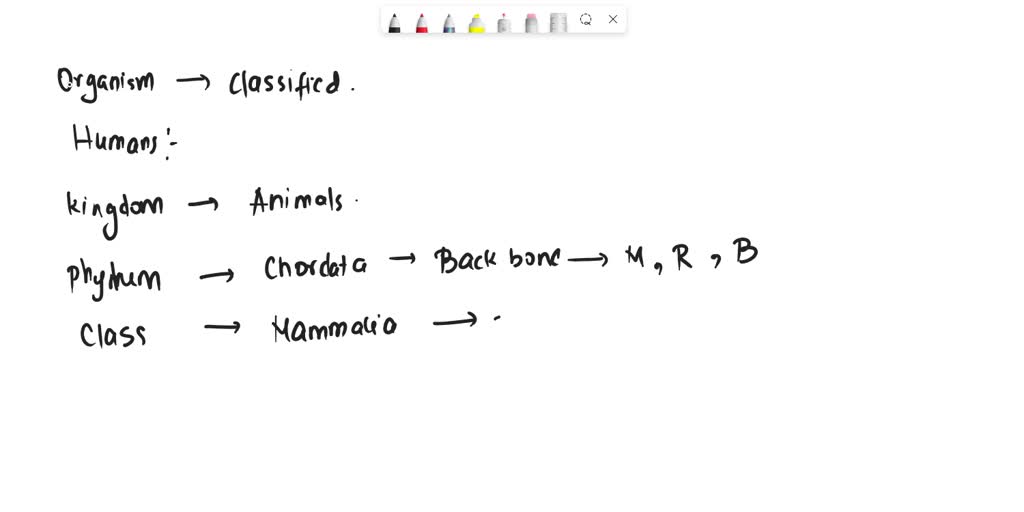 Organism → Classified.
Humans :-
kingdom → Animals.
phylum → Chordata → Back bone → M, R, B
Class → Mammalia →